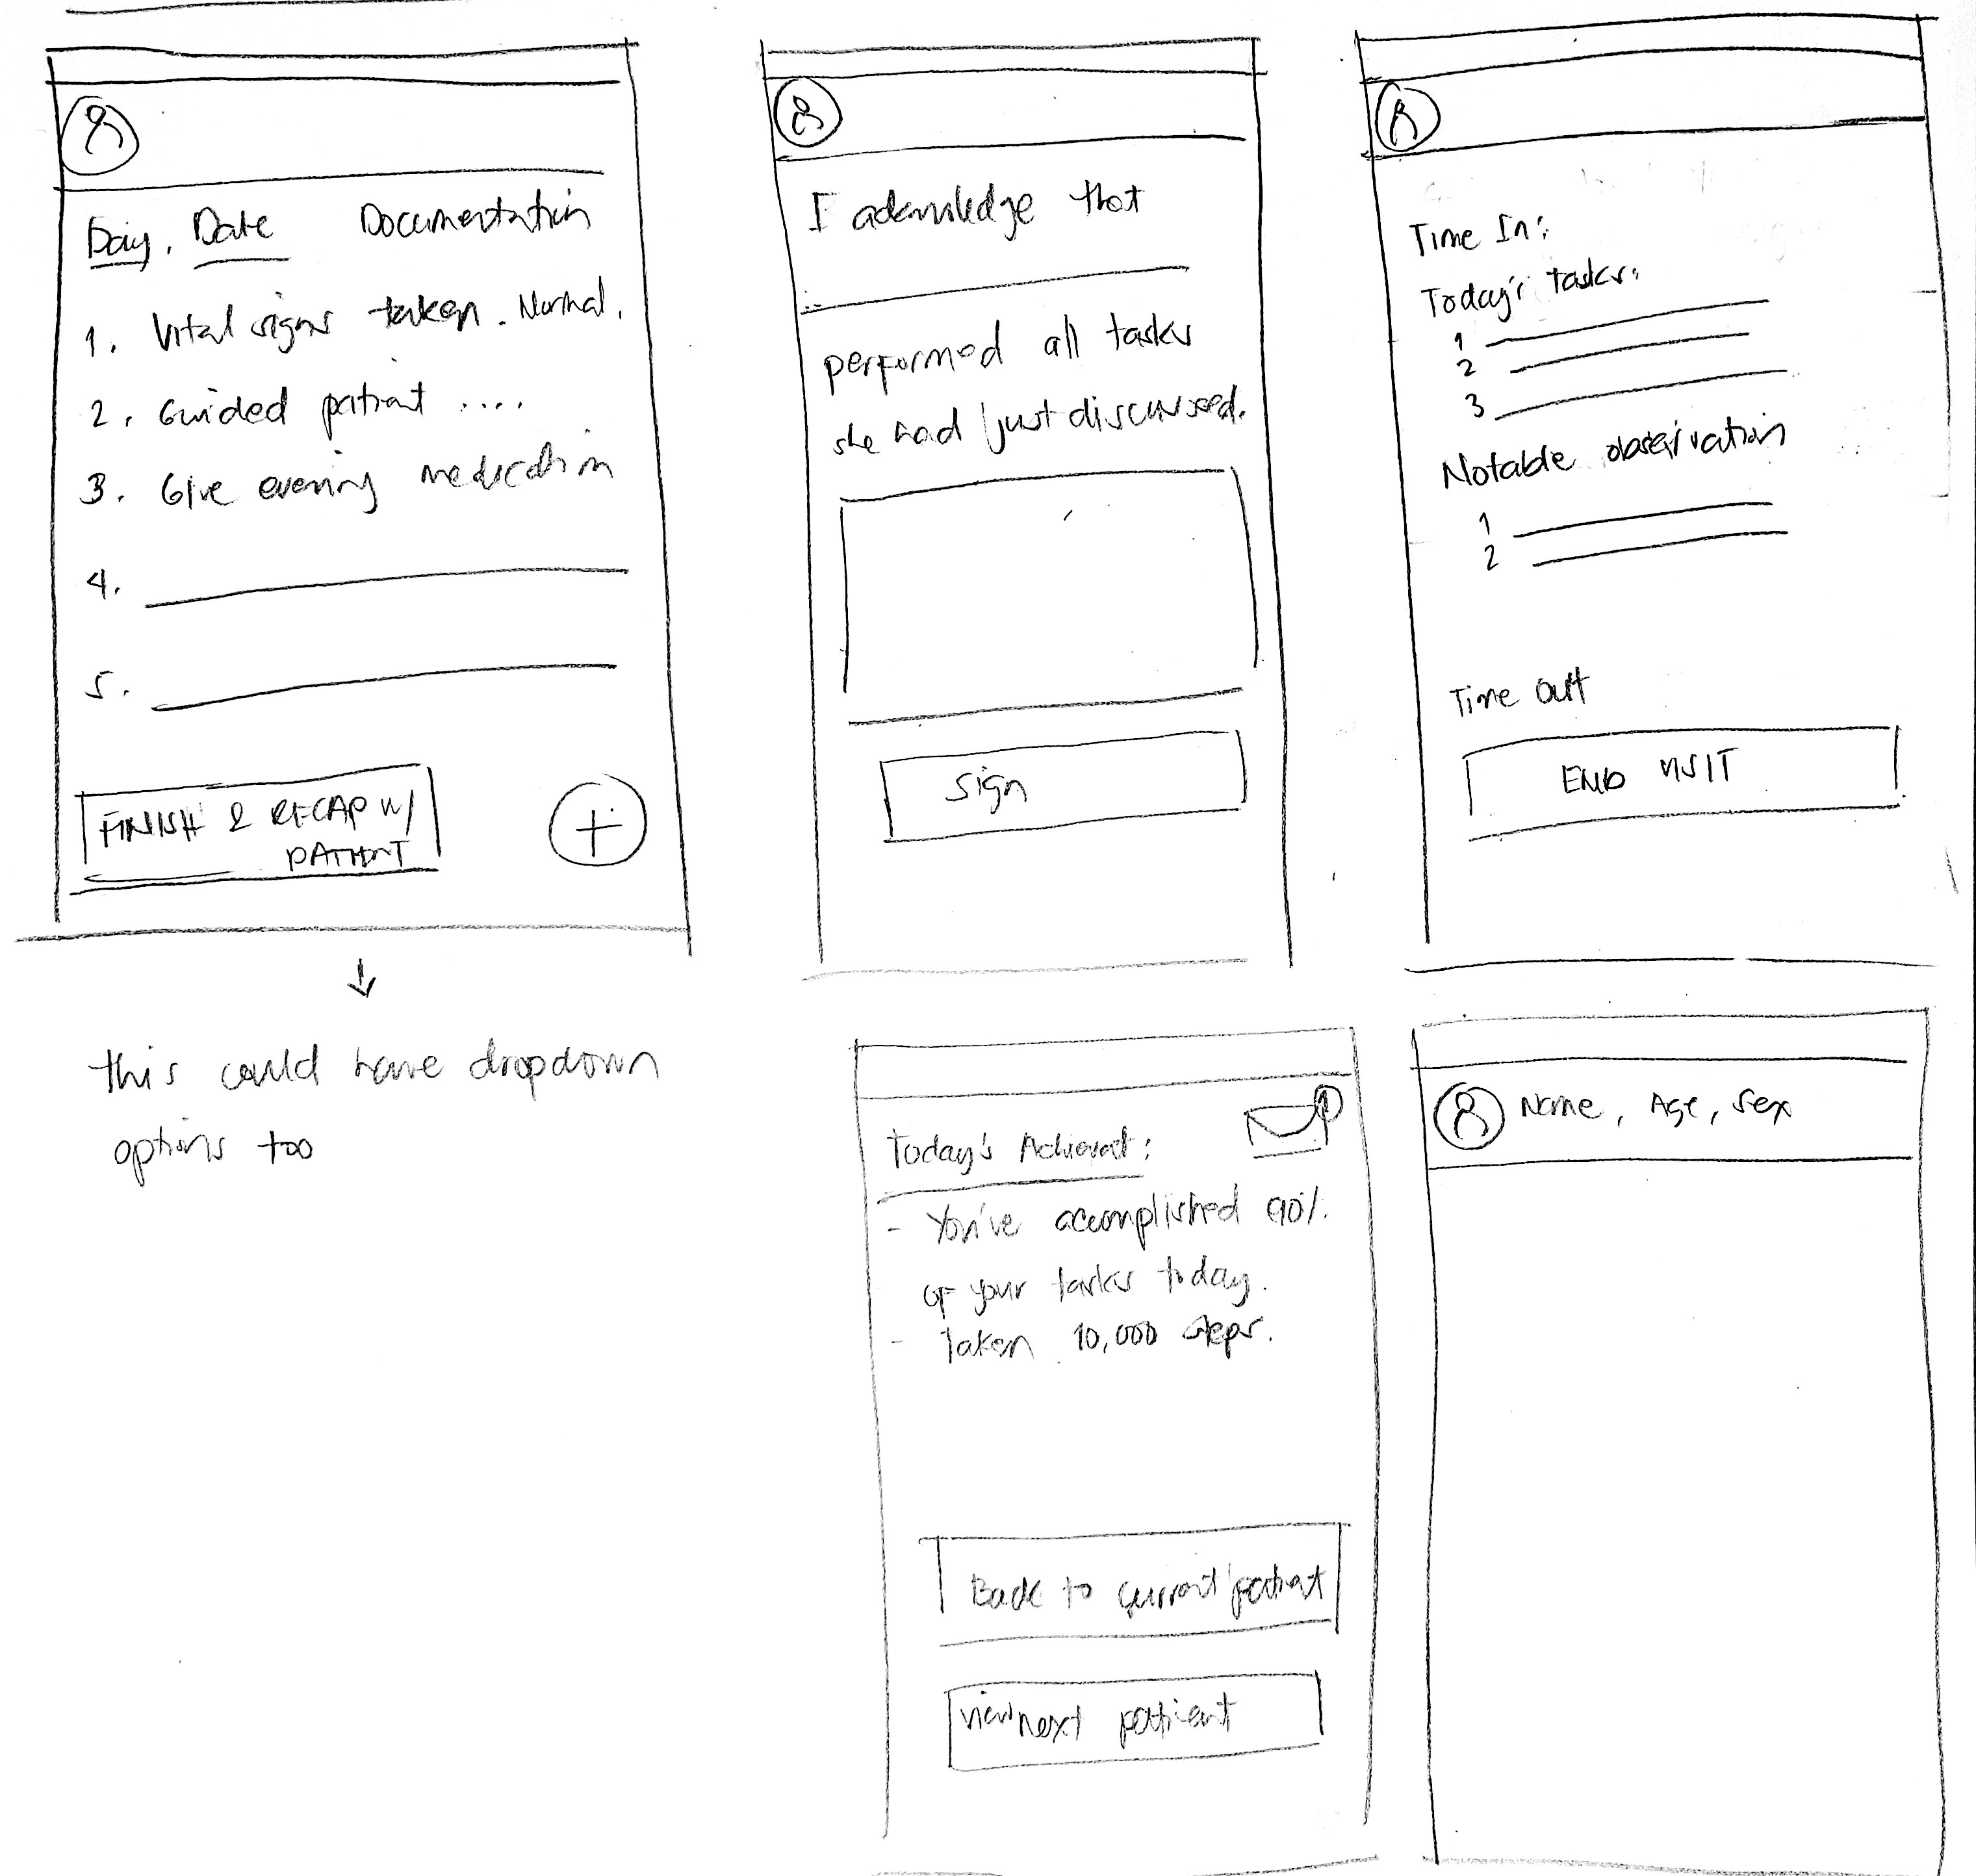 Day, Date Documentation
1. Vital signs taken. Normal.
2. Guided patient ....
3. Give evening medication
4.
5.
FINISH & RECAP W/
PATIENT
+
this could have dropdown
options too
I acknowledge that
performed all tasks
she had just discussed.
Sign
Time In:
Today's tasks:
1
2
3
Notable observation
1
2
Time Out
END VISIT
Today's Achievemt:
1
- You've accomplished 90%
of your tasks today.
- Taken 10,000 steps.
Back to current patient
view next patient
Name, Age, Sex